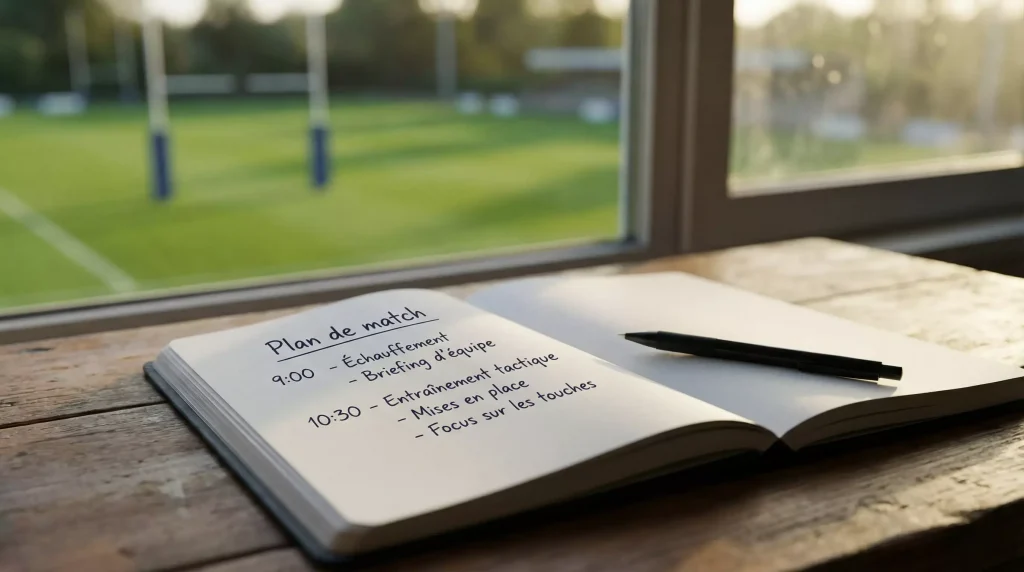 Plan de match
9:00 - Échauffement
- Briefing d'équipe
10:30 - Entraînement tactique
- Mises en place
- Focus sur les touches